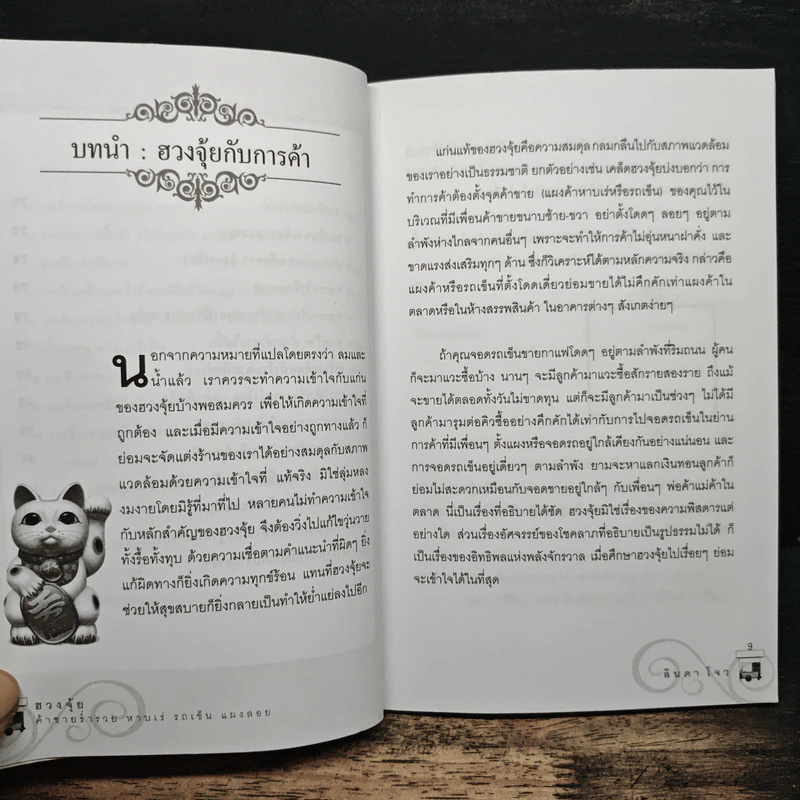 บทนำ : ฮวงจุ้ยกับการค้า
นอกจากความหมายที่แปลโดยตรงว่า ลมและ
น้ำแล้ว เราควรจะทำความเข้าใจกับแก่น
ของฮวงจุ้ยบ้างพอสมควร เพื่อให้เกิดความเข้าใจที่
ถูกต้อง และเมื่อมีความเข้าใจอย่างถูกทางแล้ว ก็
ย่อมจะจัดแต่งร้านของเราได้อย่างสมดุลกับสภาพ
แวดล้อมด้วยความเข้าใจที่ แท้จริง มิใช่ลุ่มหลง
งมงายโดยมิรู้ที่มาที่ไป หลายคนไม่ทำความเข้าใจ
กับหลักสำคัญของฮวงจุ้ย จึงต้องวิ่งไปแก้ไขวุ่นวาย
ทั้งรื้อทั้งทุบ ด้วยความเชื่อตามคำแนะนำที่ผิดๆ ยิ่ง
แก้ผิดทางก็ยิ่งเกิดความทุกข์ร้อน แทนที่ฮวงจุ้ยจะ
ช่วยให้สุขสบายก็ยิ่งกลายเป็นทำให้ย่ำแย่ลงไปอีก
ฮวงจุ้ย
ค้าขายร่ำรวย หาบเร่ รถเข็น แผงลอย
แก่นแท้ของฮวงจุ้ยคือความสมดุล กลมกลืนไปกับสภาพแวดล้อม
ของเราอย่างเป็นธรรมชาติ ยกตัวอย่างเช่น เคล็ดฮวงจุ้ยบ่งบอกว่า การ
ทำการค้าต้องตั้งจุดค้าขาย (แผงค้าหาบเร่หรือรถเข็น) ของคุณไว้ใน
บริเวณที่มีเพื่อนค้าขายขนาบซ้าย-ขวา อย่าตั้งโดดๆ ลอยๆ อยู่ตาม
ลำพังห่างไกลจากคนอื่นๆ เพราะจะทำให้การค้าไม่อุ่นหนาฝาคั่ง และ
ขาดแรงส่งเสริมทุกๆ ด้าน ซึ่งก็วิเคราะห์ได้ตามหลักความจริง กล่าวคือ
แผงค้าหรือรถเข็นที่ตั้งโดดเดี่ยวย่อมขายได้ไม่คึกคักเท่าแผงค้าใน
ตลาดหรือในห้างสรรพสินค้า ในอาคารต่างๆ สังเกตง่ายๆ
ถ้าคุณจอดรถเข็นขายกาแฟโดดๆ อยู่ตามลำพังที่ริมถนน ผู้คน
ก็จะมาแวะซื้อบ้าง นานๆ จะมีลูกค้ามาแวะซื้อสักรายสองราย ถึงแม้
จะขายได้ตลอดทั้งวันไม่ขาดทุน แต่ก็จะมีลูกค้ามาเป็นช่วงๆ ไม่ได้มี
ลูกค้ามารุมต่อคิวซื้ออย่างคึกคักได้เท่ากับการไปจอดรถเข็นในย่าน
การค้าที่มีเพื่อนๆ ตั้งแผงหรือจอดรถอยู่ใกล้เคียงกันอย่างแน่นอน และ
การจอดรถเข็นอยู่เดี่ยวๆ ตามลำพัง ยามจะหาแลกเงินทอนลูกค้าก็
ย่อมไม่สะดวกเหมือนกับจอดขายอยู่ใกล้ๆ กับเพื่อนๆ พ่อค้าแม่ค้าใน
ตลาด นี่เป็นเรื่องที่อธิบายได้ชัด ฮวงจุ้ยมิใช่เรื่องของความพิสดารแต่
อย่างใด ส่วนเรื่องอัศจรรย์ของโชคลาภที่อธิบายเป็นรูปธรรมไม่ได้ ก็
เป็นเรื่องของอิทธิพลแห่งพลังจักรวาล เมื่อศึกษาฮวงจุ้ยไปเรื่อยๆ ย่อม
จะเข้าใจได้ในที่สุด
9
ลินดา โจว